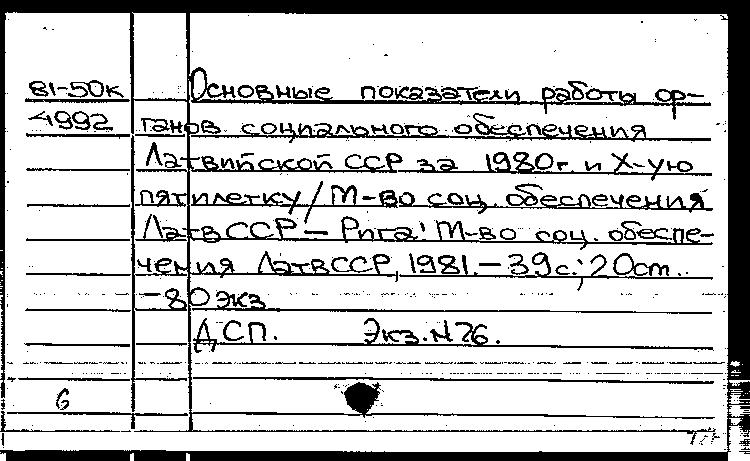 81-50к Основные показатели работы ор-
4992 ганов социального обеспечения
Латвийской ССР за 1980г. и X-ую
пятилетку / М-во соц. обеспечения
ЛатвССР – Рига: М-во соц. обеспе-
чения ЛатвССР, 1981. – 39с.; 20см.
– 80экз
ДСП. Экз. №26.
6